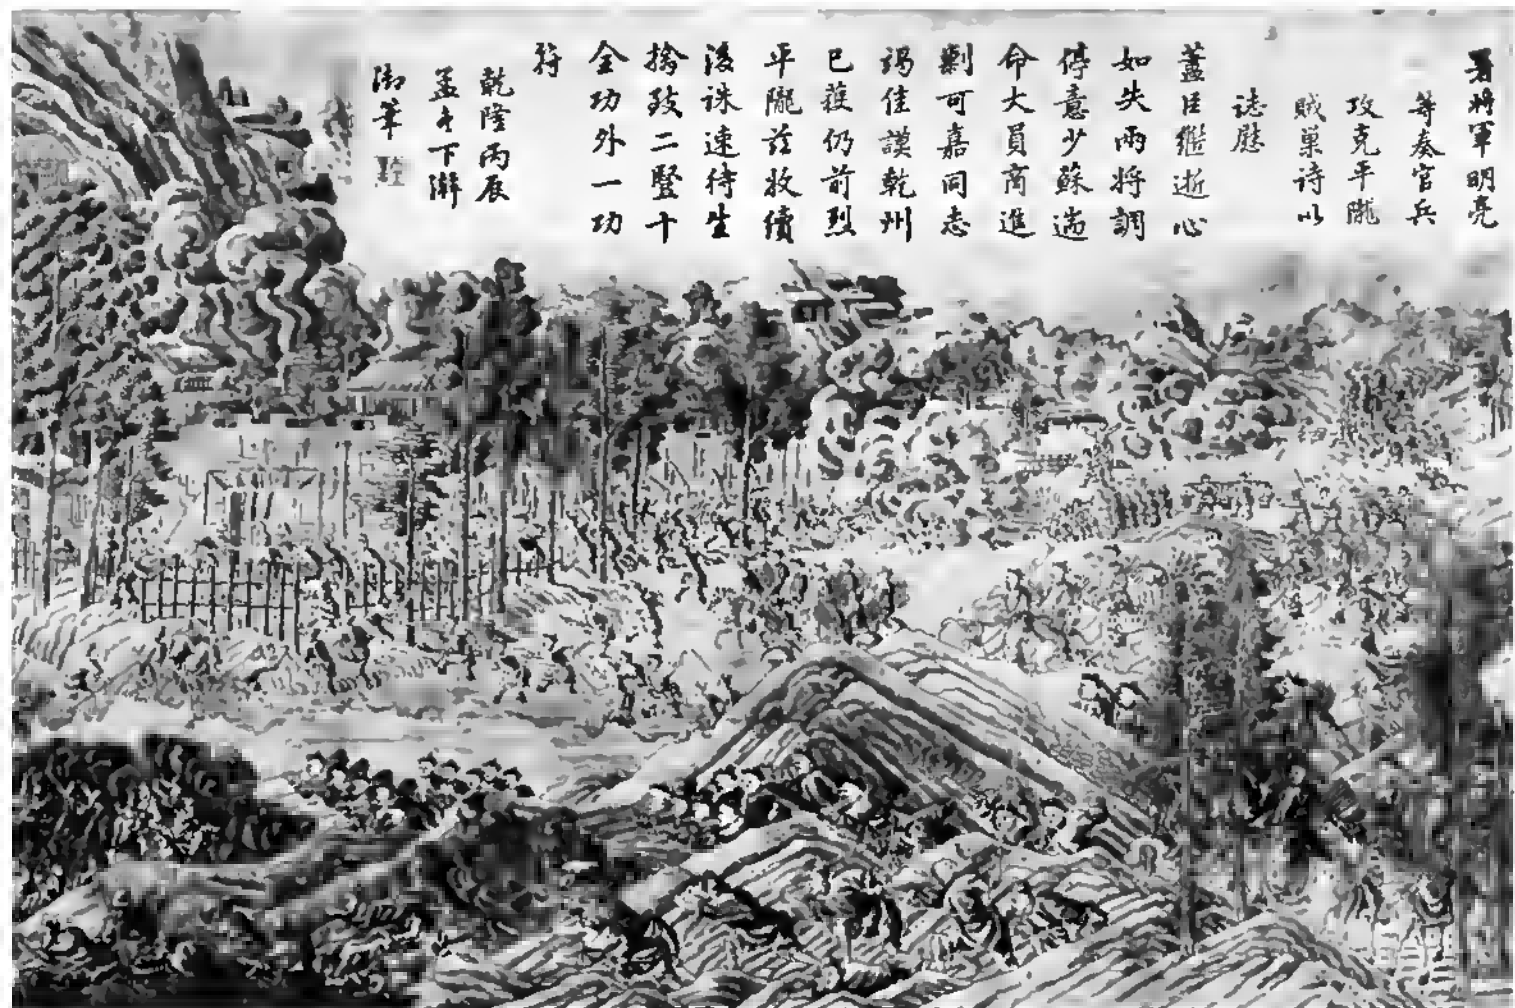 署將軍明亮
等奏官兵
攻克平隴
賊巢詩以
誌慰
藎臣繼逝心
如失兩將調
停意少蘇遄
命大員商進
剿可嘉同志
竭佳謨乾州
已復仍前烈
平隴茲收續
後誅速待生
擒致二豎十
全功外一功
符
乾隆丙辰
孟冬下澣
御筆